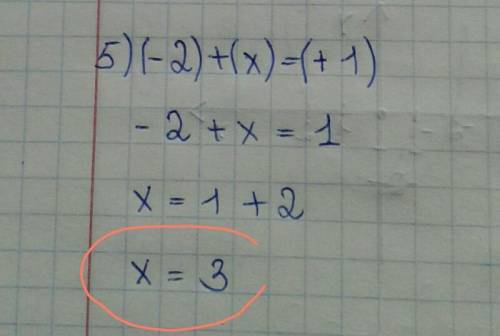 5) (-2) + (x) = (+ 1)
- 2 + x = 1
x = 1 + 2
x = 3